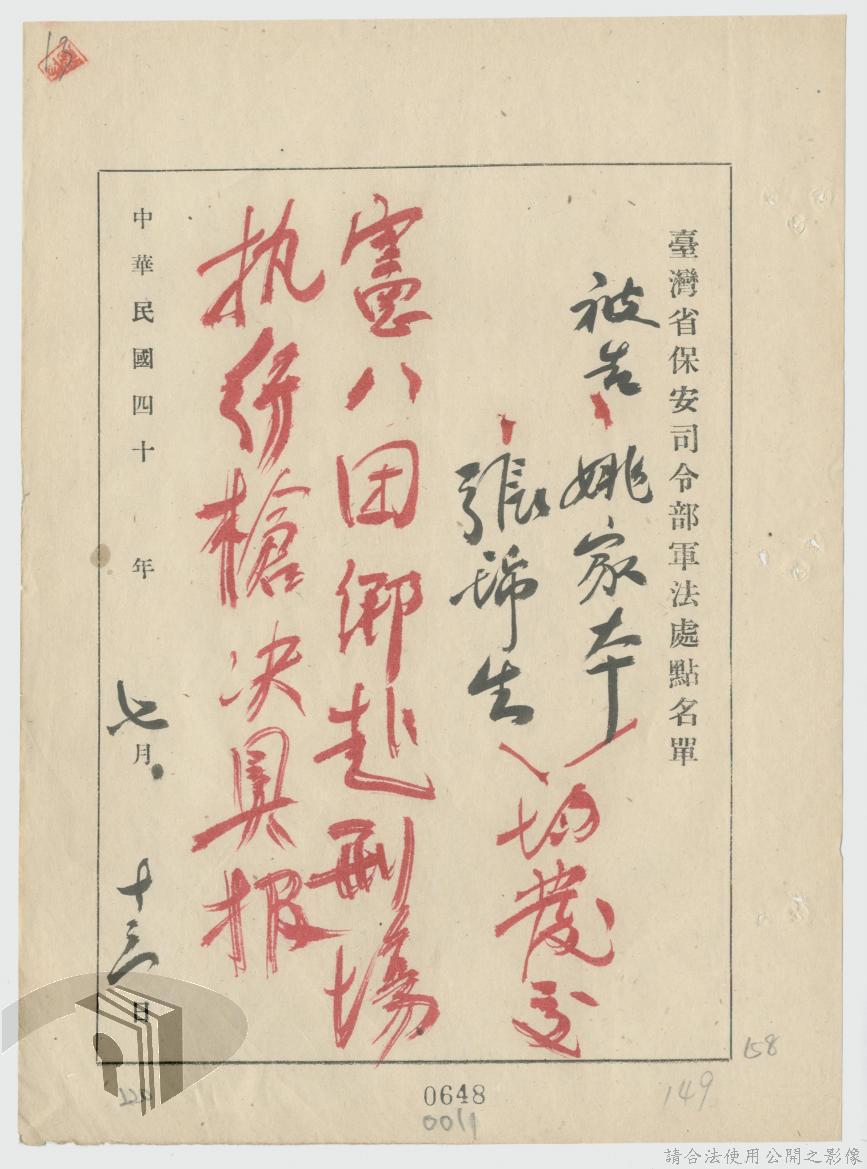 臺灣省保安司令部軍法處點名單
被告 姚家本
張瑞生
均發交
憲八团鄉赴刑場
执行槍决具报
中華民國四十年七月十三日
0648
0011
149
158
請合法使用公開之影像